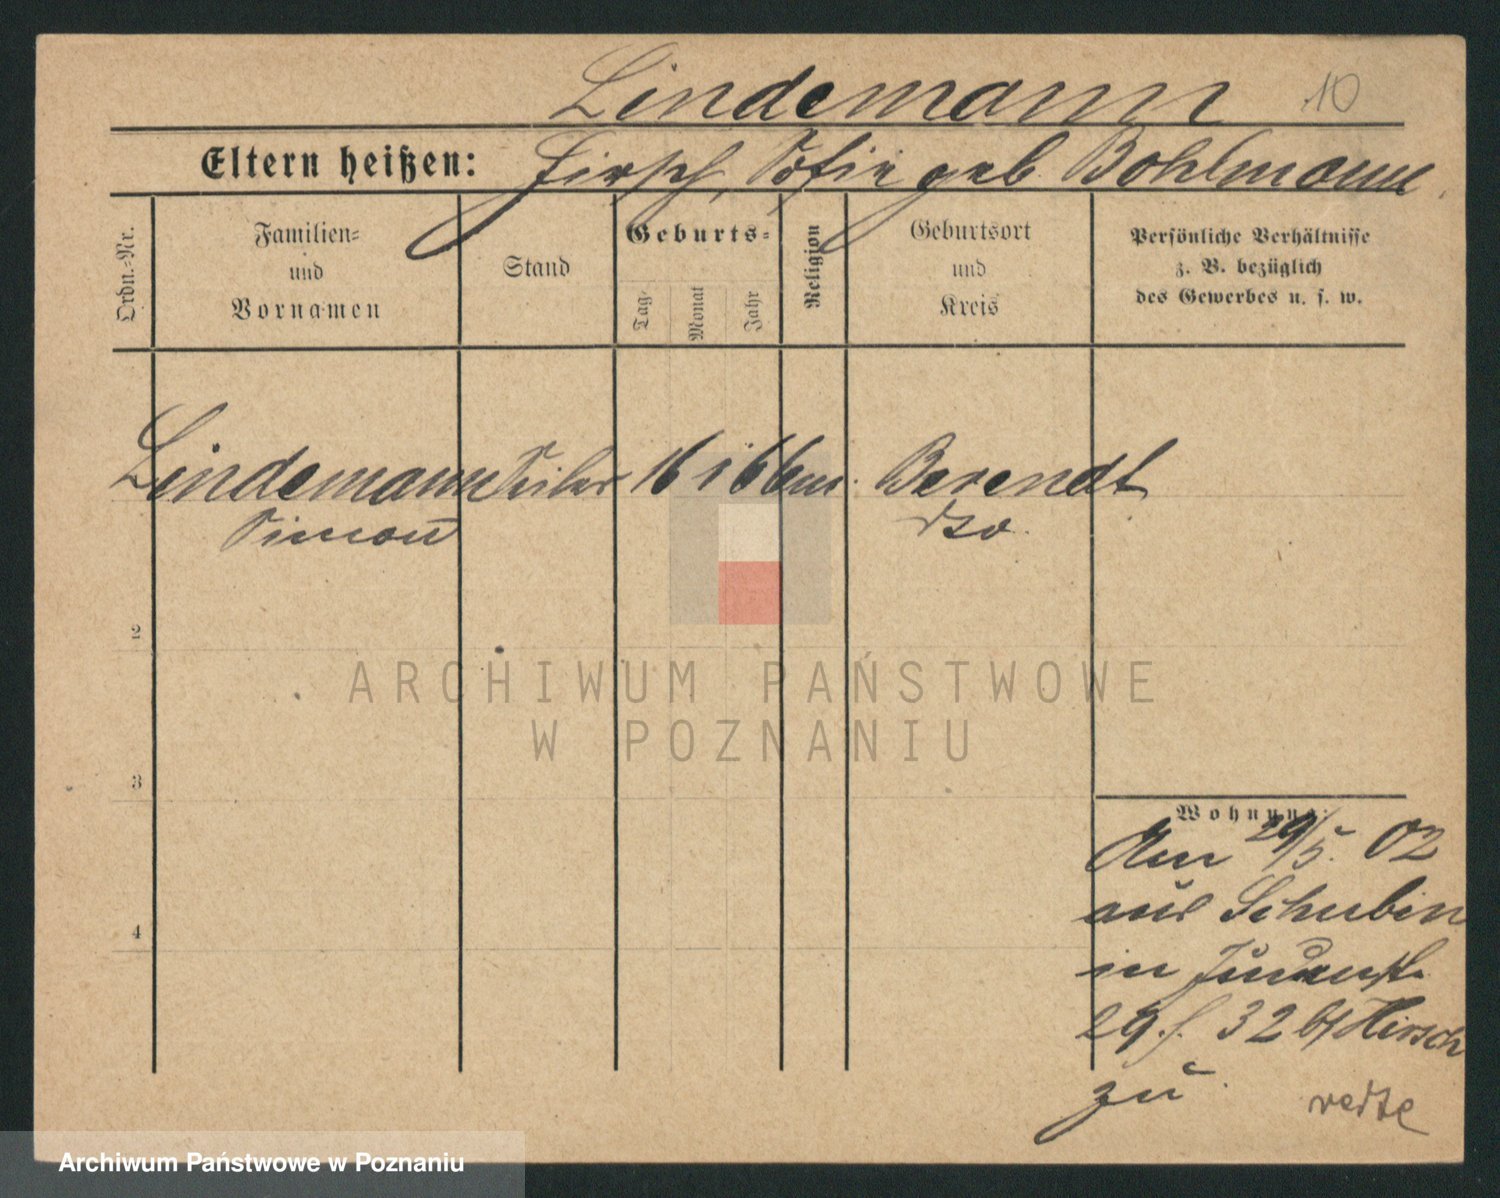 Lindemann 10
Eltern heißen: Hirsch, Sofie geb. Bohlmann
Ordn.-Nr.
Familien-
und
Vornamen
Stand
Geburts-
Tag
Monat
Jahr
Religion
Geburtsort
und
Kreis
Persönliche Verhältnisse
z. B. bezüglich
des Gewerbes u. s. w.
Lindemann 16 1 66 Berendt
Simon dto.
2
ARCHIWUM PAŃSTWOWE
W POZNANIU
3
4
Wohnung:
Am 29/5. 02
aus Schubin
in Judenstr.
29. f. 32 bt Hirsch
zu
Archiwum Państwowe w Poznaniu